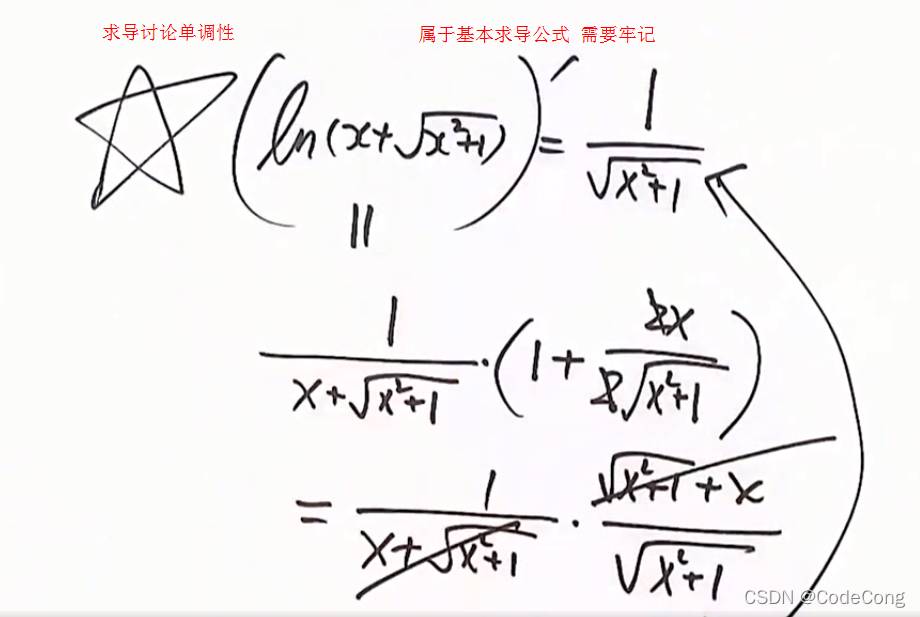 求导讨论单调性 属于基本求导公式 需要牢记
(ln(x+√(x²+1)))′ = 1/√(x²+1)
||
1/(x+√(x²+1)) · (1 + 2x/(2√(x²+1)))
= 1/(x+√(x²+1)) · (√(x²+1)+x)/√(x²+1)
CSDN @CodeCong